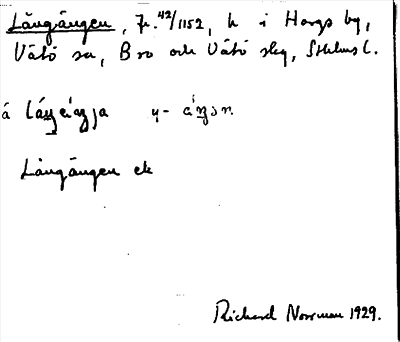 Långängen, Fr. 42/1152, h i Hargs by,
Vätö sn, Bro och Vätö skg, Sthlms l.
å låŋäŋja y- äŋən
Långängen ek
Richard Norrman 1929.